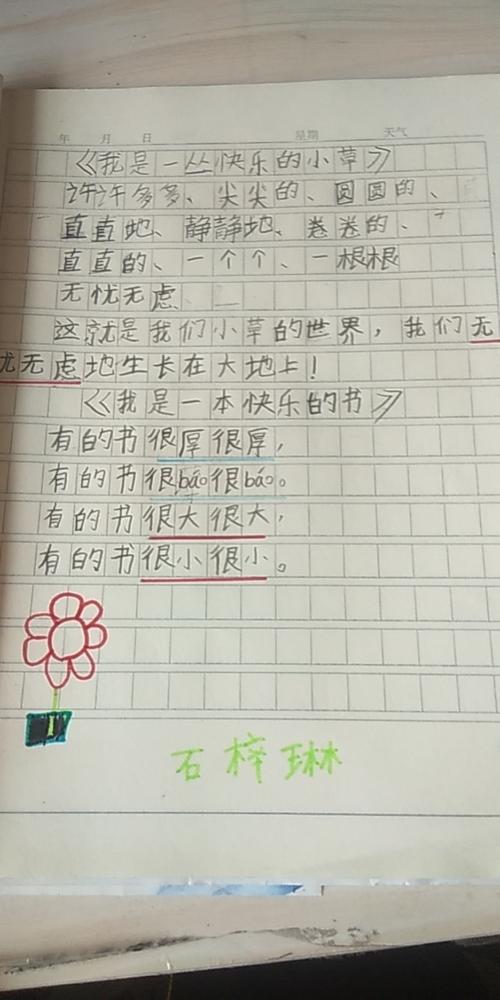 年 月 日 星期 天气
《我是一丛快乐的小草》
许许多多、尖尖的、圆圆的、
直直地、静静地、卷卷的、
直直的、一个个、一根根
无忧无虑
这就是我们小草的世界，我们无
忧无虑地生长在大地上！
《我是一本快乐的书》
有的书很厚很厚，
有的书很báo很báo。
有的书很大很大，
有的书很小很小。
石梓琳